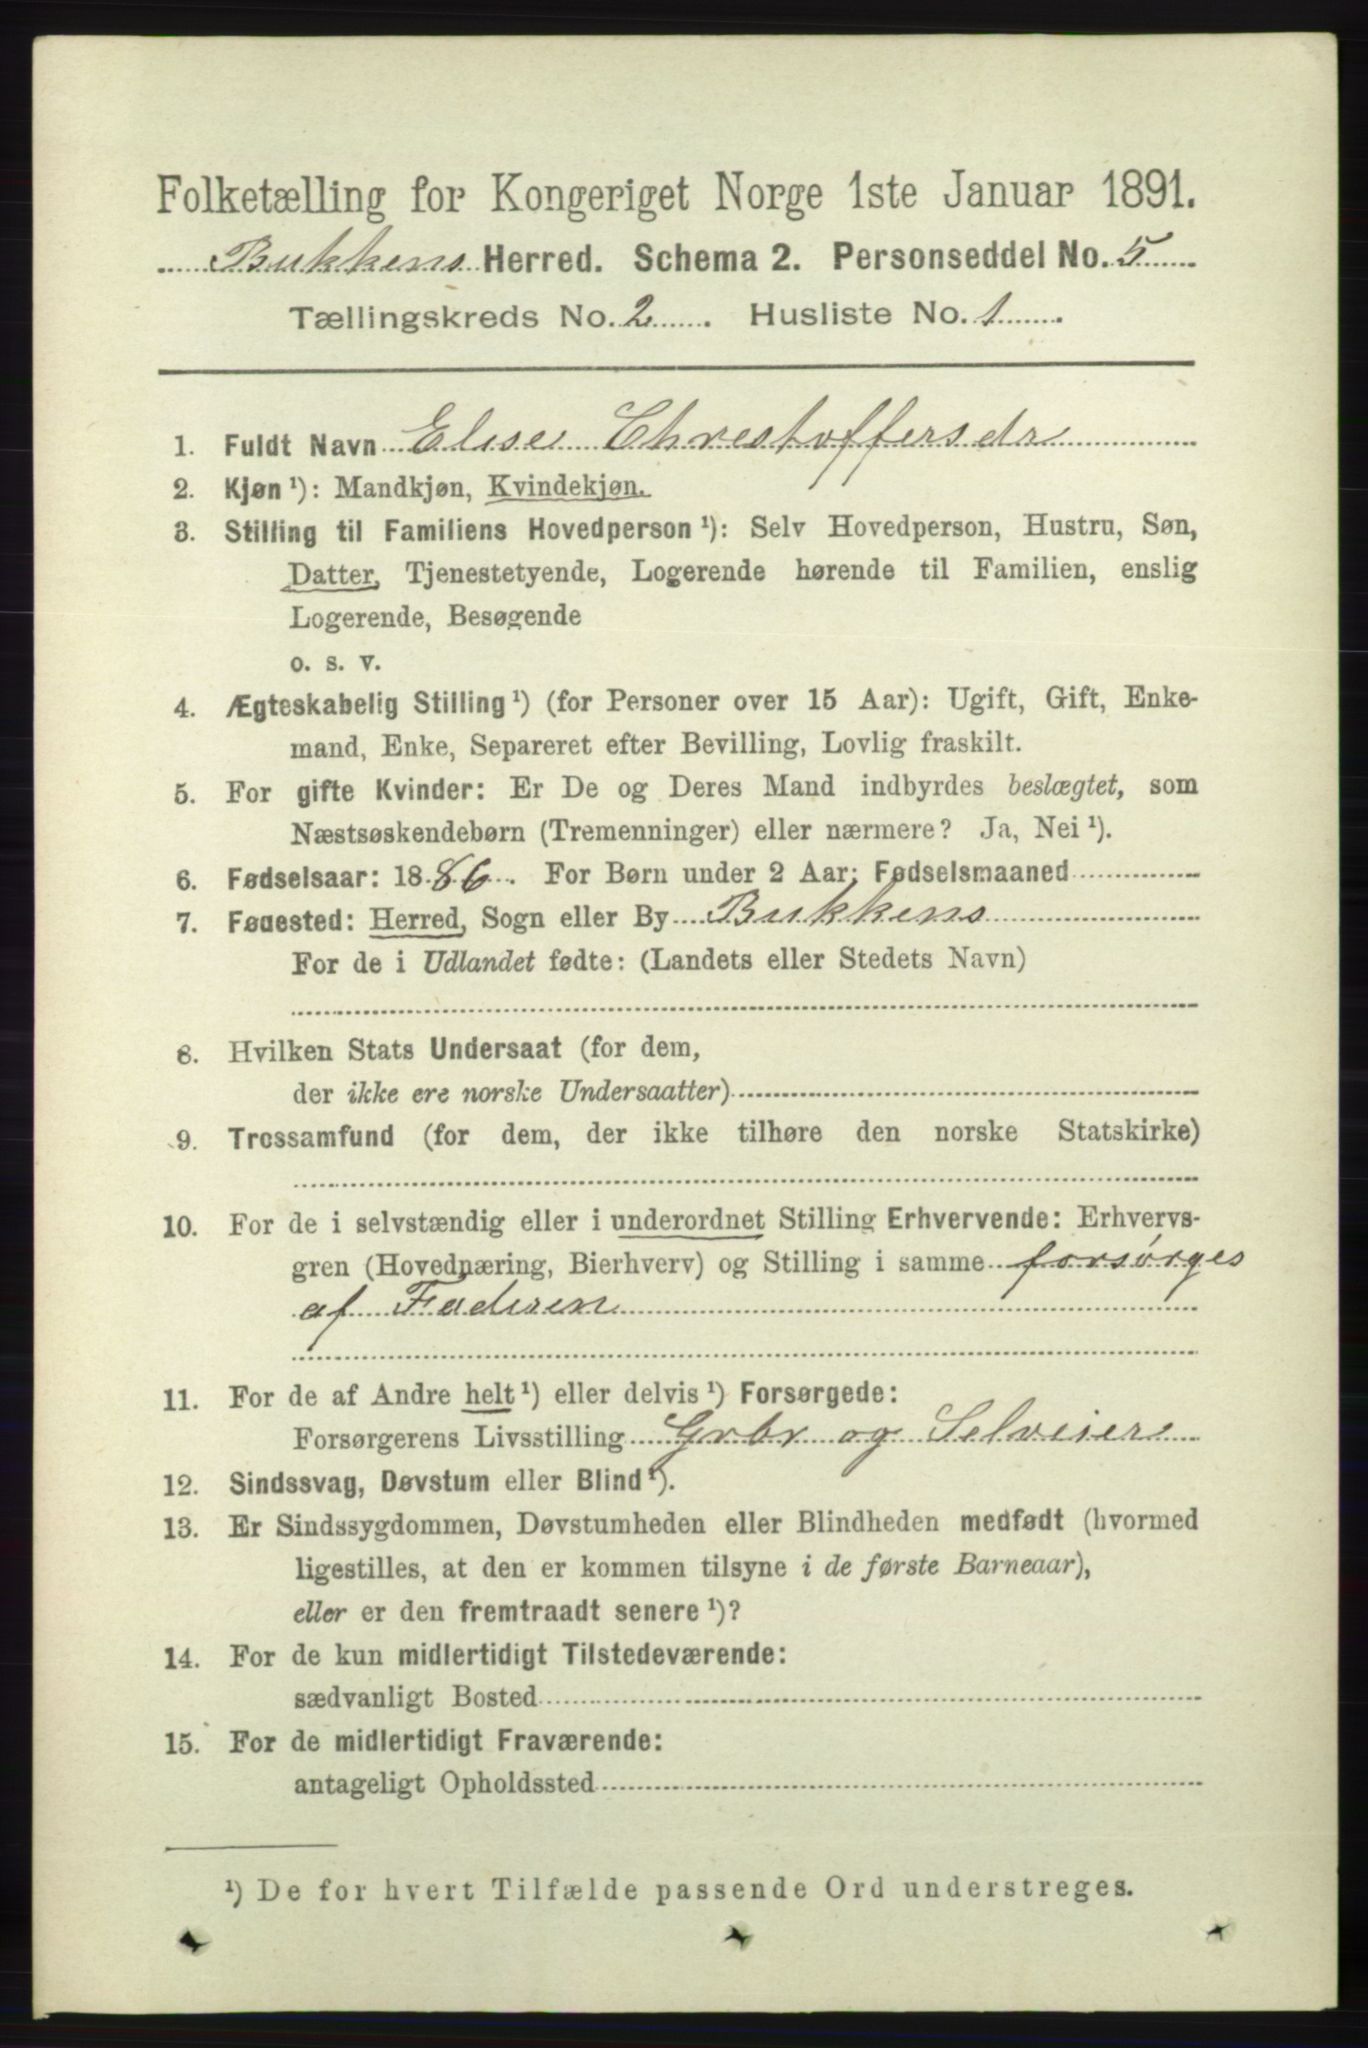 Folketælling for Kongeriget Norge 1ste Januar 1891.
Bukkens Herred. Schema 2. Personseddel No. 5
Tællingskreds No. 2 . Husliste No. 1 .
1. Fuldt Navn Elise Chrestoffersdr
2. Kjøn ¹): Mandkjøn, Kvindekjøn.
3. Stilling til Familiens Hovedperson ¹): Selv Hovedperson, Hustru, Søn,
Datter, Tjenestetyende, Logerende hørende til Familien, enslig
Logerende, Besøgende
o. s. v.
4. Ægteskabelig Stilling ¹) (for Personer over 15 Aar): Ugift, Gift, Enke-
mand, Enke, Separeret efter Bevilling, Lovlig fraskilt.
5. For gifte Kvinder: Er De og Deres Mand indbyrdes beslægtet, som
Næstsøskendebørn (Tremenninger) eller nærmere? Ja, Nei ¹).
6. Fødselsaar: 1886. For Børn under 2 Aar: Fødselsmaaned
7. Fødested: Herred, Sogn eller By Bukkens
For de i Udlandet fødte: (Landets eller Stedets Navn)
8. Hvilken Stats Undersaat (for dem,
der ikke ere norske Undersaatter)
9. Trossamfund (for dem, der ikke tilhøre den norske Statskirke)
10. For de i selvstændig eller i underordnet Stilling Erhvervende: Erhvervs-
gren (Hovednæring, Bierhverv) og Stilling i samme forsørges
af Faderen
11. For de af Andre helt ¹) eller delvis ¹) Forsørgede:
Forsørgerens Livsstilling Grbr og Selveier
12. Sindssvag, Døvstum eller Blind ¹).
13. Er Sindssygdommen, Døvstumheden eller Blindheden medfødt (hvormed
ligestilles, at den er kommen tilsyne i de første Barneaar),
eller er den fremtraadt senere ¹)?
14. For de kun midlertidigt Tilstedeværende:
sædvanligt Bosted
15. For de midlertidigt Fraværende:
antageligt Opholdssted
¹) De for hvert Tilfælde passende Ord understreges.